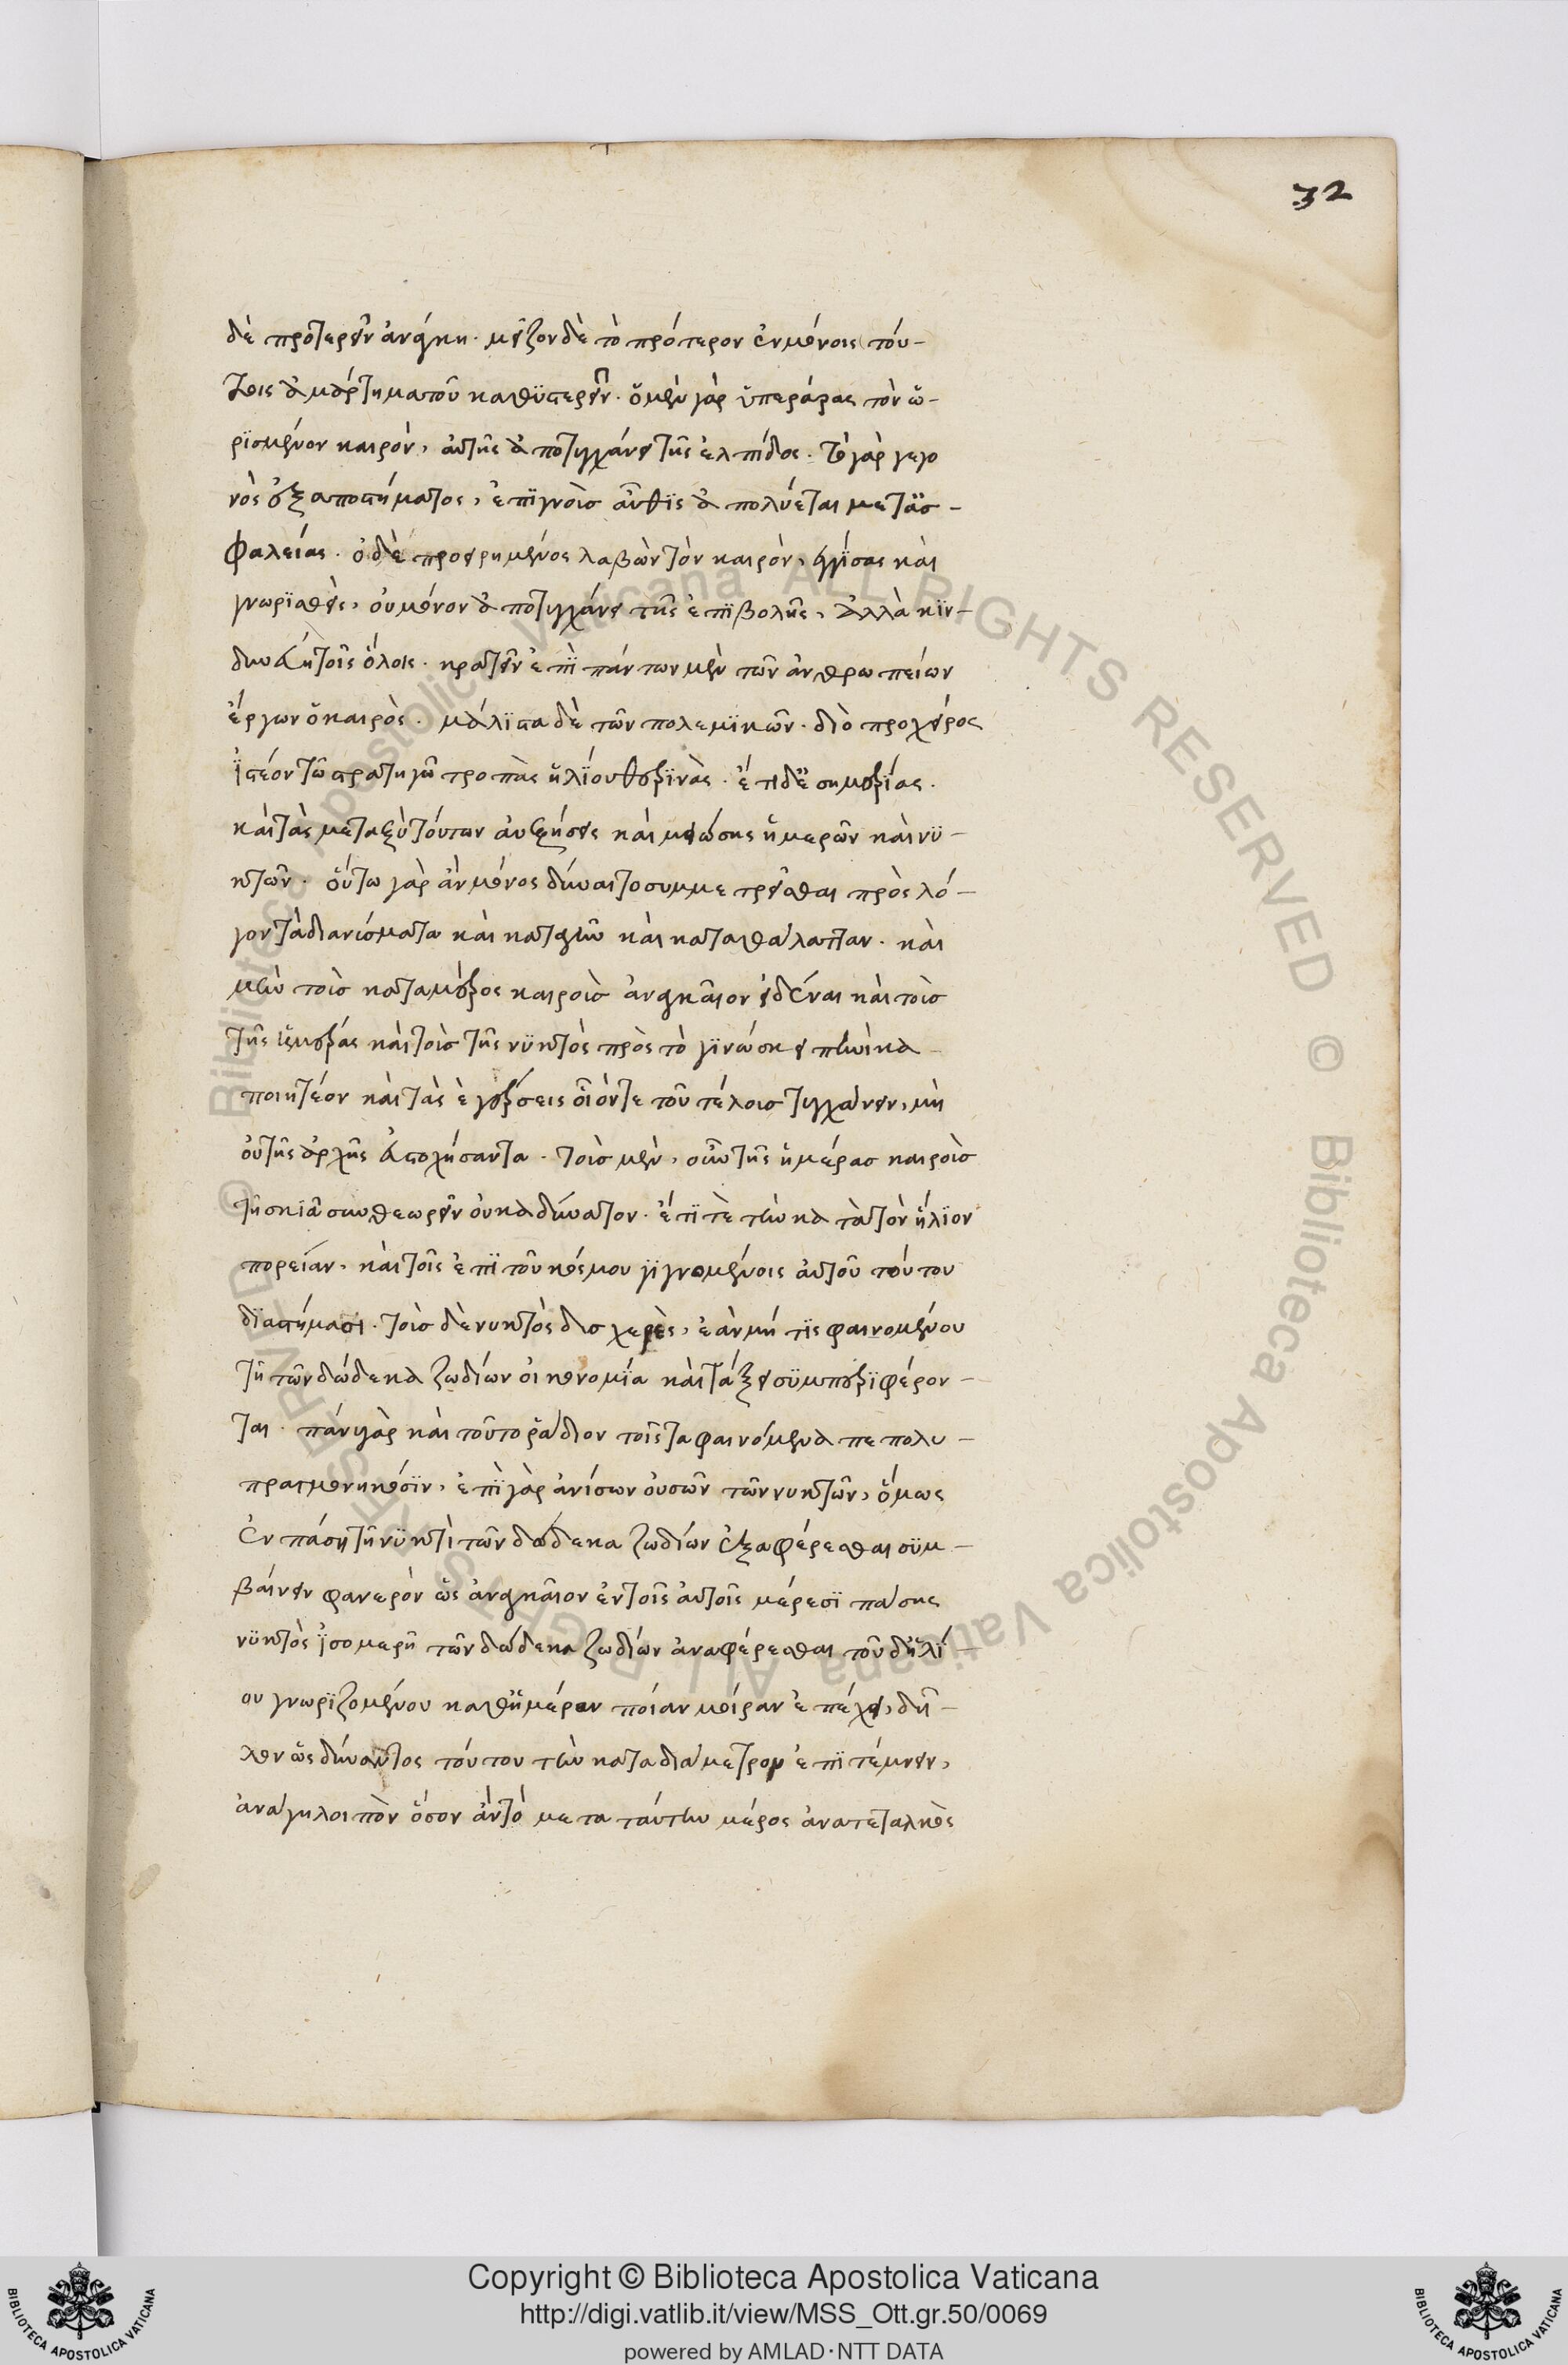 32
δὲ προτερεῖν ἀνάγκη· μεῖζον δὲ τὸ πρότερον ἐν μόνοις τού-
τοις ἁμάρτημα τοῦ καθυστερεῖν· ὁ μὲν γὰρ ὑπεράρας τὸν ὡ-
ρϊσμένον καιρὸν, αὐτῆς ἀποτυγχάνει τῆς ἐλπίδος. τὸ γὰρ γεγο
νὸς ἐξ αποστήματος, ἐπϊγνοὺς αὖθϊς ἀπολύεται μετ ἀσ-
φαλείας. ὁ δὲ προειρημένος λαβὼν τὸν καιρὸν, ἐγγΐσας καὶ
γνωρϊσθεὶς, οὐ μόνον ἀποτυγχάνει τῆς ἐπϊβολῆς, ἀλλὰ κϊν-
δυνεύει τοῖς ὅλοις. κρατεῖν ἐπῒ πάντων μὲν τῶν ἀνθρωπείων
ἔργων ὁ καιρὸς. μάλϊστα δὲ τῶν πολεμϊκῶν. διὸ προχείρος
ϊστέον τῶ στρατηγῶ τροπὰς ἡλΐου θερϊνὰς. ἔτι δὲ ϊσημερΐας.
καὶ τὰς μεταξὺ τούτων αὐξήσεις καὶ μειώσης ἡμερῶν καὶ νϋ-
κτῶν. οὕτω γὰρ ἂν μόνος δύναιτο συμμετρεῖσθαι πρὸς λό-
γον τὰ διανύσματα καὶ κατα γῆν καὶ κατα θάλατταν. καὶ
μὴν τοὺς κατα μέρος καιροὺς ἀναγκαῖον εἰδέναι καὶ τοὺς
τῆς ἡμέρας καὶ τοὺς τῆς νϋκτὸς πρὸς τὸ γϊνώσκει πηνίκα
ποιητέον καὶ τὰς ἐγέρσεις οἷόν τε τοῦ τέλους τυγχάνειν, μὴ
οὐ τῆς ἀρχῆς εὐστοχήσαντα. τοὺς μὲν, οὖν τῆς ἡμέρας καιροὺς
τῆ σκιᾶ συνθεωρεῖν οὐκ ἀδύνατον. ἔτϊ τὲ τὴν κατὰ τὸν ἥλϊον
πορείαν, καὶ τοῖς ἐπϊ τοῦ κόσμου γϊγνομένοις αὐτοῦ τούτου
δϊαστήμασι. τοὺς δὲ νυκτὸς δυσχερὲς, ἐὰν μή τϊς φαινομένου
τῆ τῶν δώδεκα ζωδίων οἰκονομΐα καὶ τάξει σϋμπερϊφέρον-
ται. πάνυ γὰρ καὶ τοῦτο ῥάδιον τοῖς τα φαινόμενα πεπολυ-
πραγμονηκόσϊν, ἐπῒ γὰρ ἀνίσων οὐσῶν τῶν νυκτῶν, ὅμως
ἐν πάση τῆ νϋκτὶ τῶν δώδεκα ζωδίων ἓξ αφέρεσθαι σϋμ-
βαίνειν φανερὸν ὡς ἀναγκαῖον ἐν τοῖς αὐτοῖς μέρεσϊ πάσης
νϋκτὸς ΐσομερῆ τῶν δώδεκα ζωδίων ἀναφέρεσθαι τοῦ δ ἡλΐ-
ου γνωρϊζομένου καθ ἡμέραν ποίαν μοίραν ἐπέχει, δῆ-
λον ὡς δύναντος τούτου τὴν κατα διάμετρον ἐπϊτέμνειν,
ἀνάγκη λοιπὸν ὅσον ἂν τὸ μετα ταύτην μέρος ἀνατεταλκὸς
© Biblioteca Apostolica Vaticana ALL RIGHTS RESERVED © Biblioteca Apostolica Vaticana ALL RIGHTS RESERVED
Copyright © Biblioteca Apostolica Vaticana
http://digi.vatlib.it/view/MSS_Ott.gr.50/0069
powered by AMLAD·NTT DATA
BIBLIOTECA APOSTOLICA VATICANA
BIBLIOTECA APOSTOLICA VATICANA